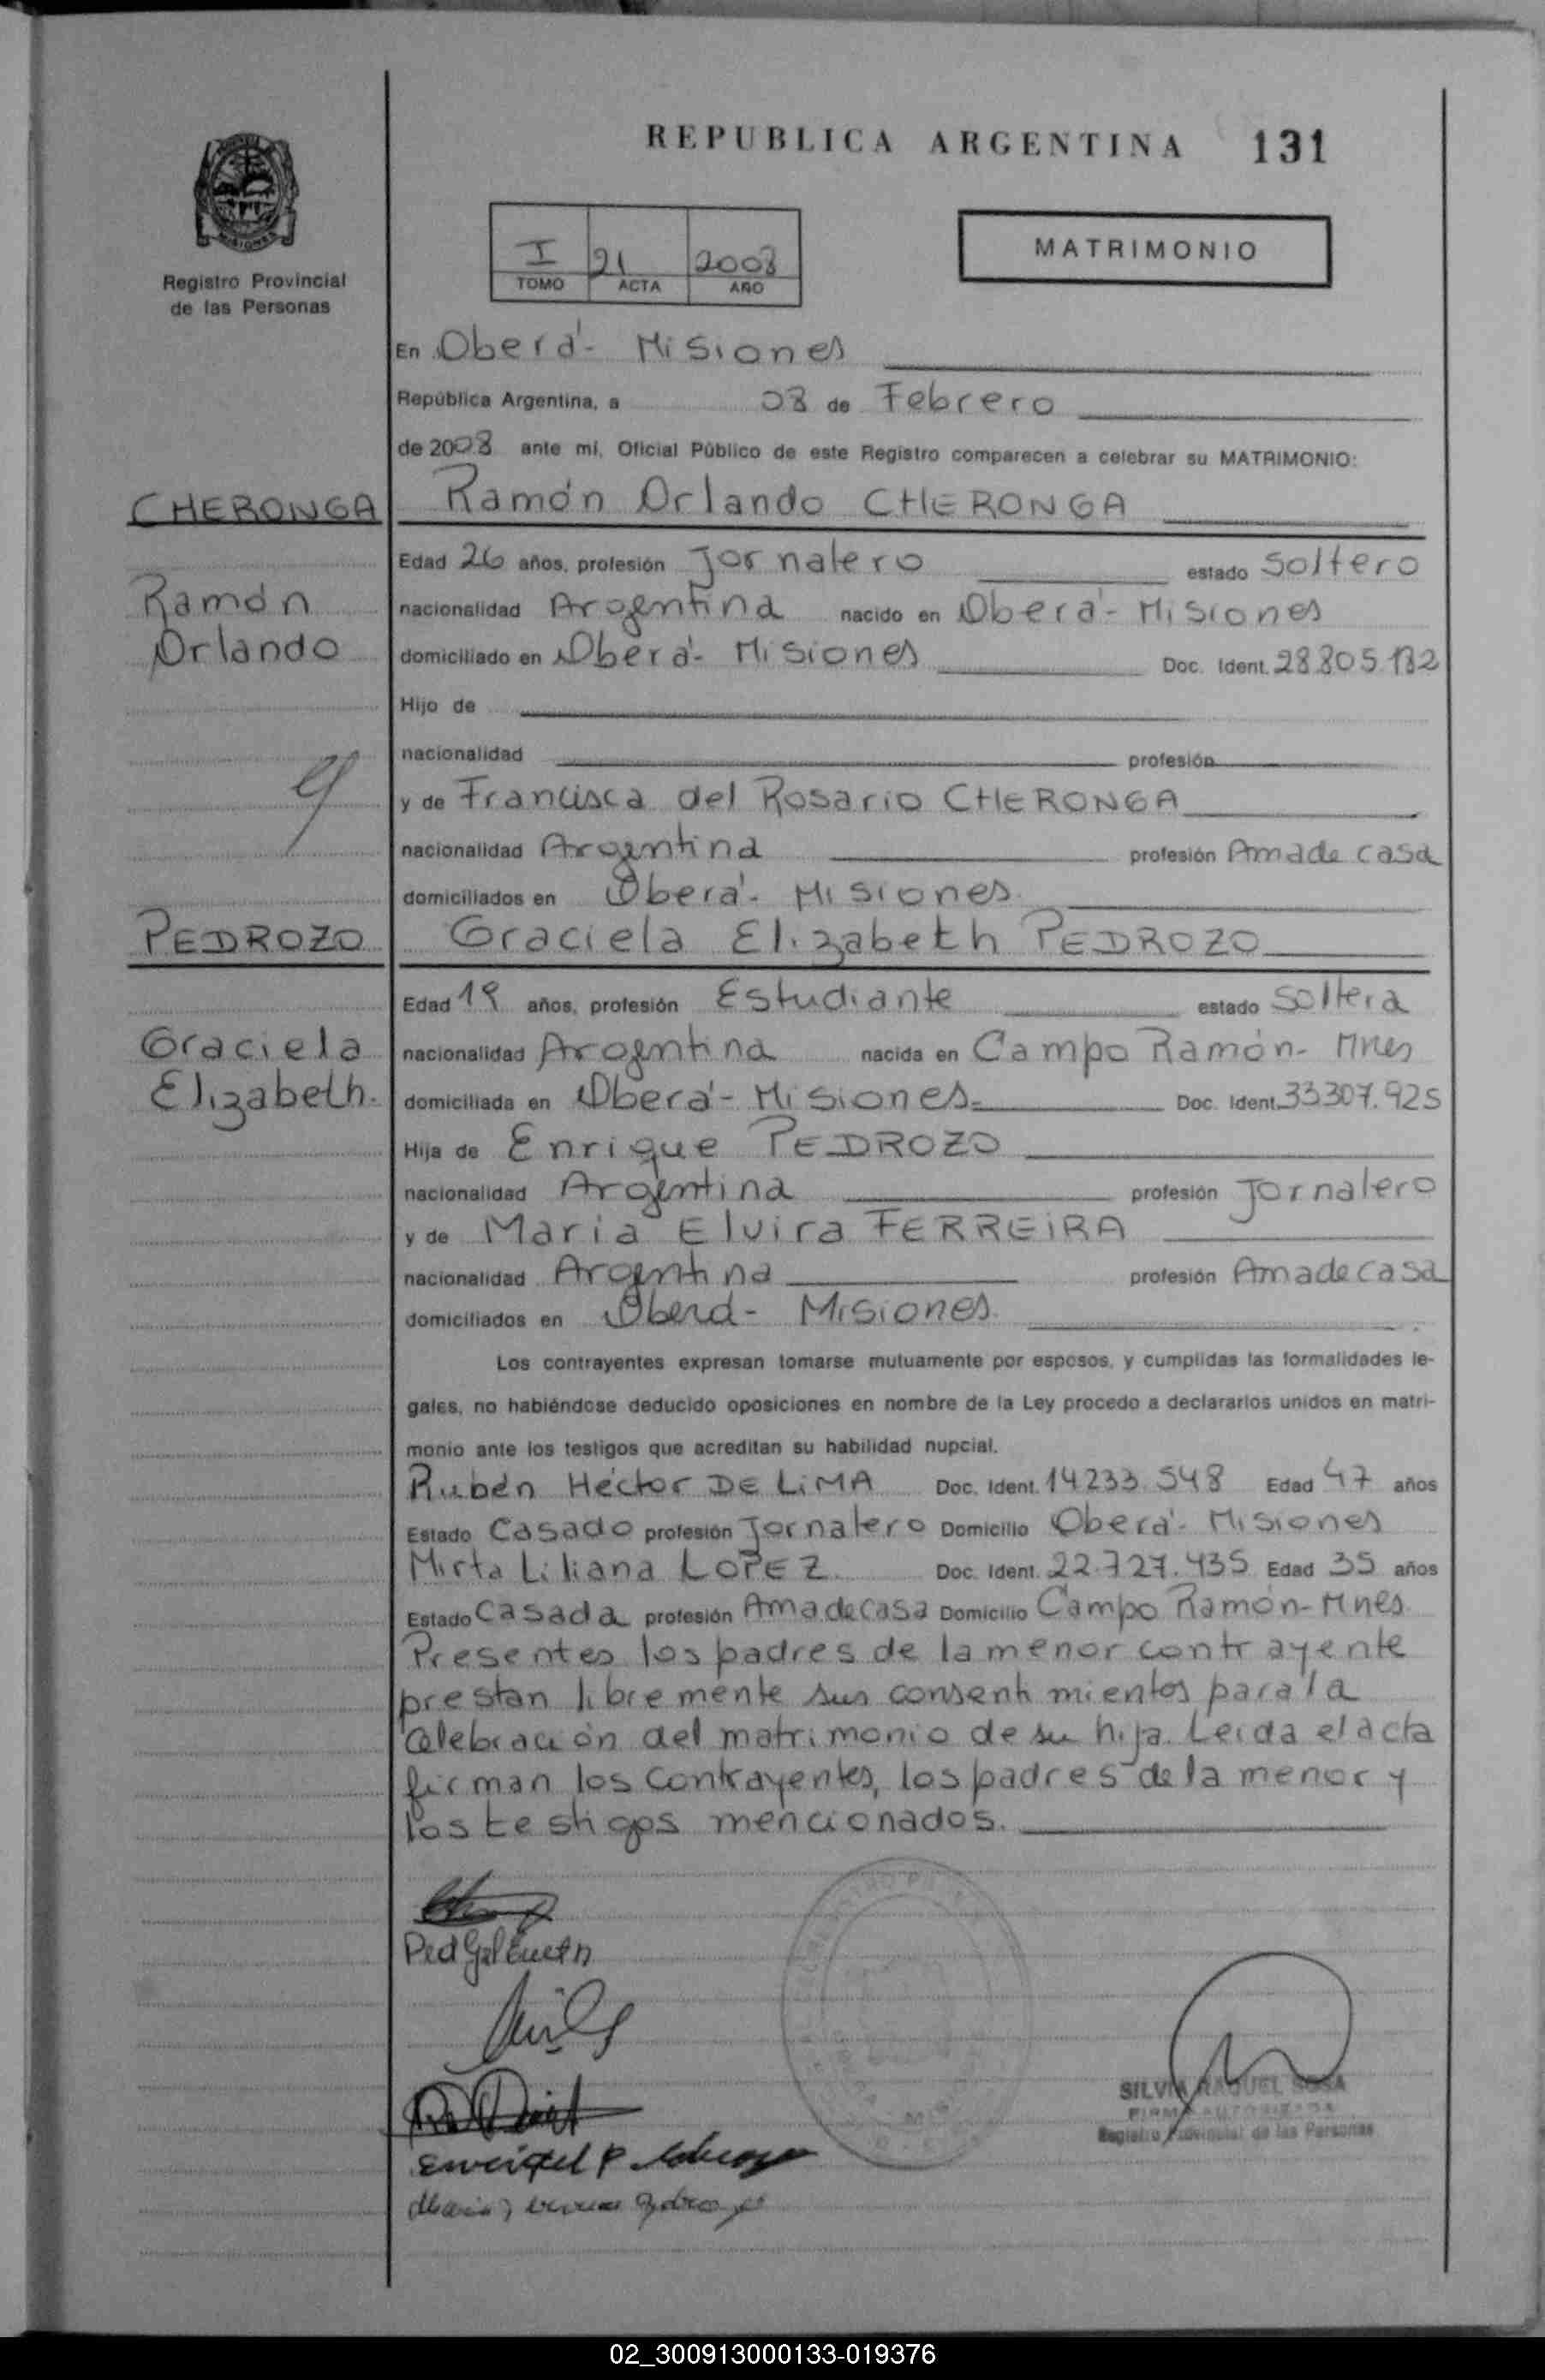 REPUBLICA ARGENTINA 131
MISIONES
Registro Provincial
de las Personas
I 21 2008
TOMO ACTA AÑO
MATRIMONIO
En Oberá - Misiones
República Argentina, a 08 de Febrero
de 2008 ante mí, Oficial Público de este Registro comparecen a celebrar su MATRIMONIO:
CHERONGA Ramón Orlando CHERONGA
Edad 26 años, profesión Jornalero estado Soltero
Ramón nacionalidad Argentina nacido en Oberá - Misiones
Orlando domiciliado en Oberá - Misiones Doc. Ident. 28.805.182
Hijo de
nacionalidad profesión
y de Francisca del Rosario CHERONGA
nacionalidad Argentina profesión Ama de casa
domiciliados en Oberá - Misiones
PEDROZO Graciela Elizabeth PEDROZO
Edad 19 años, profesión Estudiante estado Soltera
Graciela nacionalidad Argentina nacida en Campo Ramón - Mnes
Elizabeth. domiciliada en Oberá - Misiones Doc. Ident. 33307.925
Hija de Enrique PEDROZO
nacionalidad Argentina profesión Jornalero
y de Maria Elvira FERREIRA
nacionalidad Argentina profesión Ama de casa
domiciliados en Oberá - Misiones
Los contrayentes expresan tomarse mutuamente por esposos, y cumplidas las formalidades le-
gales, no habiéndose deducido oposiciones en nombre de la Ley procedo a declararlos unidos en matri-
monio ante los testigos que acreditan su habilidad nupcial.
Rubén Héctor DE LIMA Doc. Ident. 14233.548 Edad 47 años
Estado Casado profesión Jornalero Domicilio Oberá - Misiones
Mirta Liliana LOPEZ Doc. Ident. 22.727.435 Edad 35 años
Estado Casada profesión Ama de casa Domicilio Campo Ramón - Mnes
Presentes los padres de la menor contrayente
prestan libremente sus consentimientos para la
celebración del matrimonio de su hija. Leida el acta
firman los contrayentes, los padres de la menor y
los testigos mencionados.
SILVIA RAQUEL SOSA
FIRMA AUTORIZADA
Registro Provincial de las Personas
02_300913000133-019376